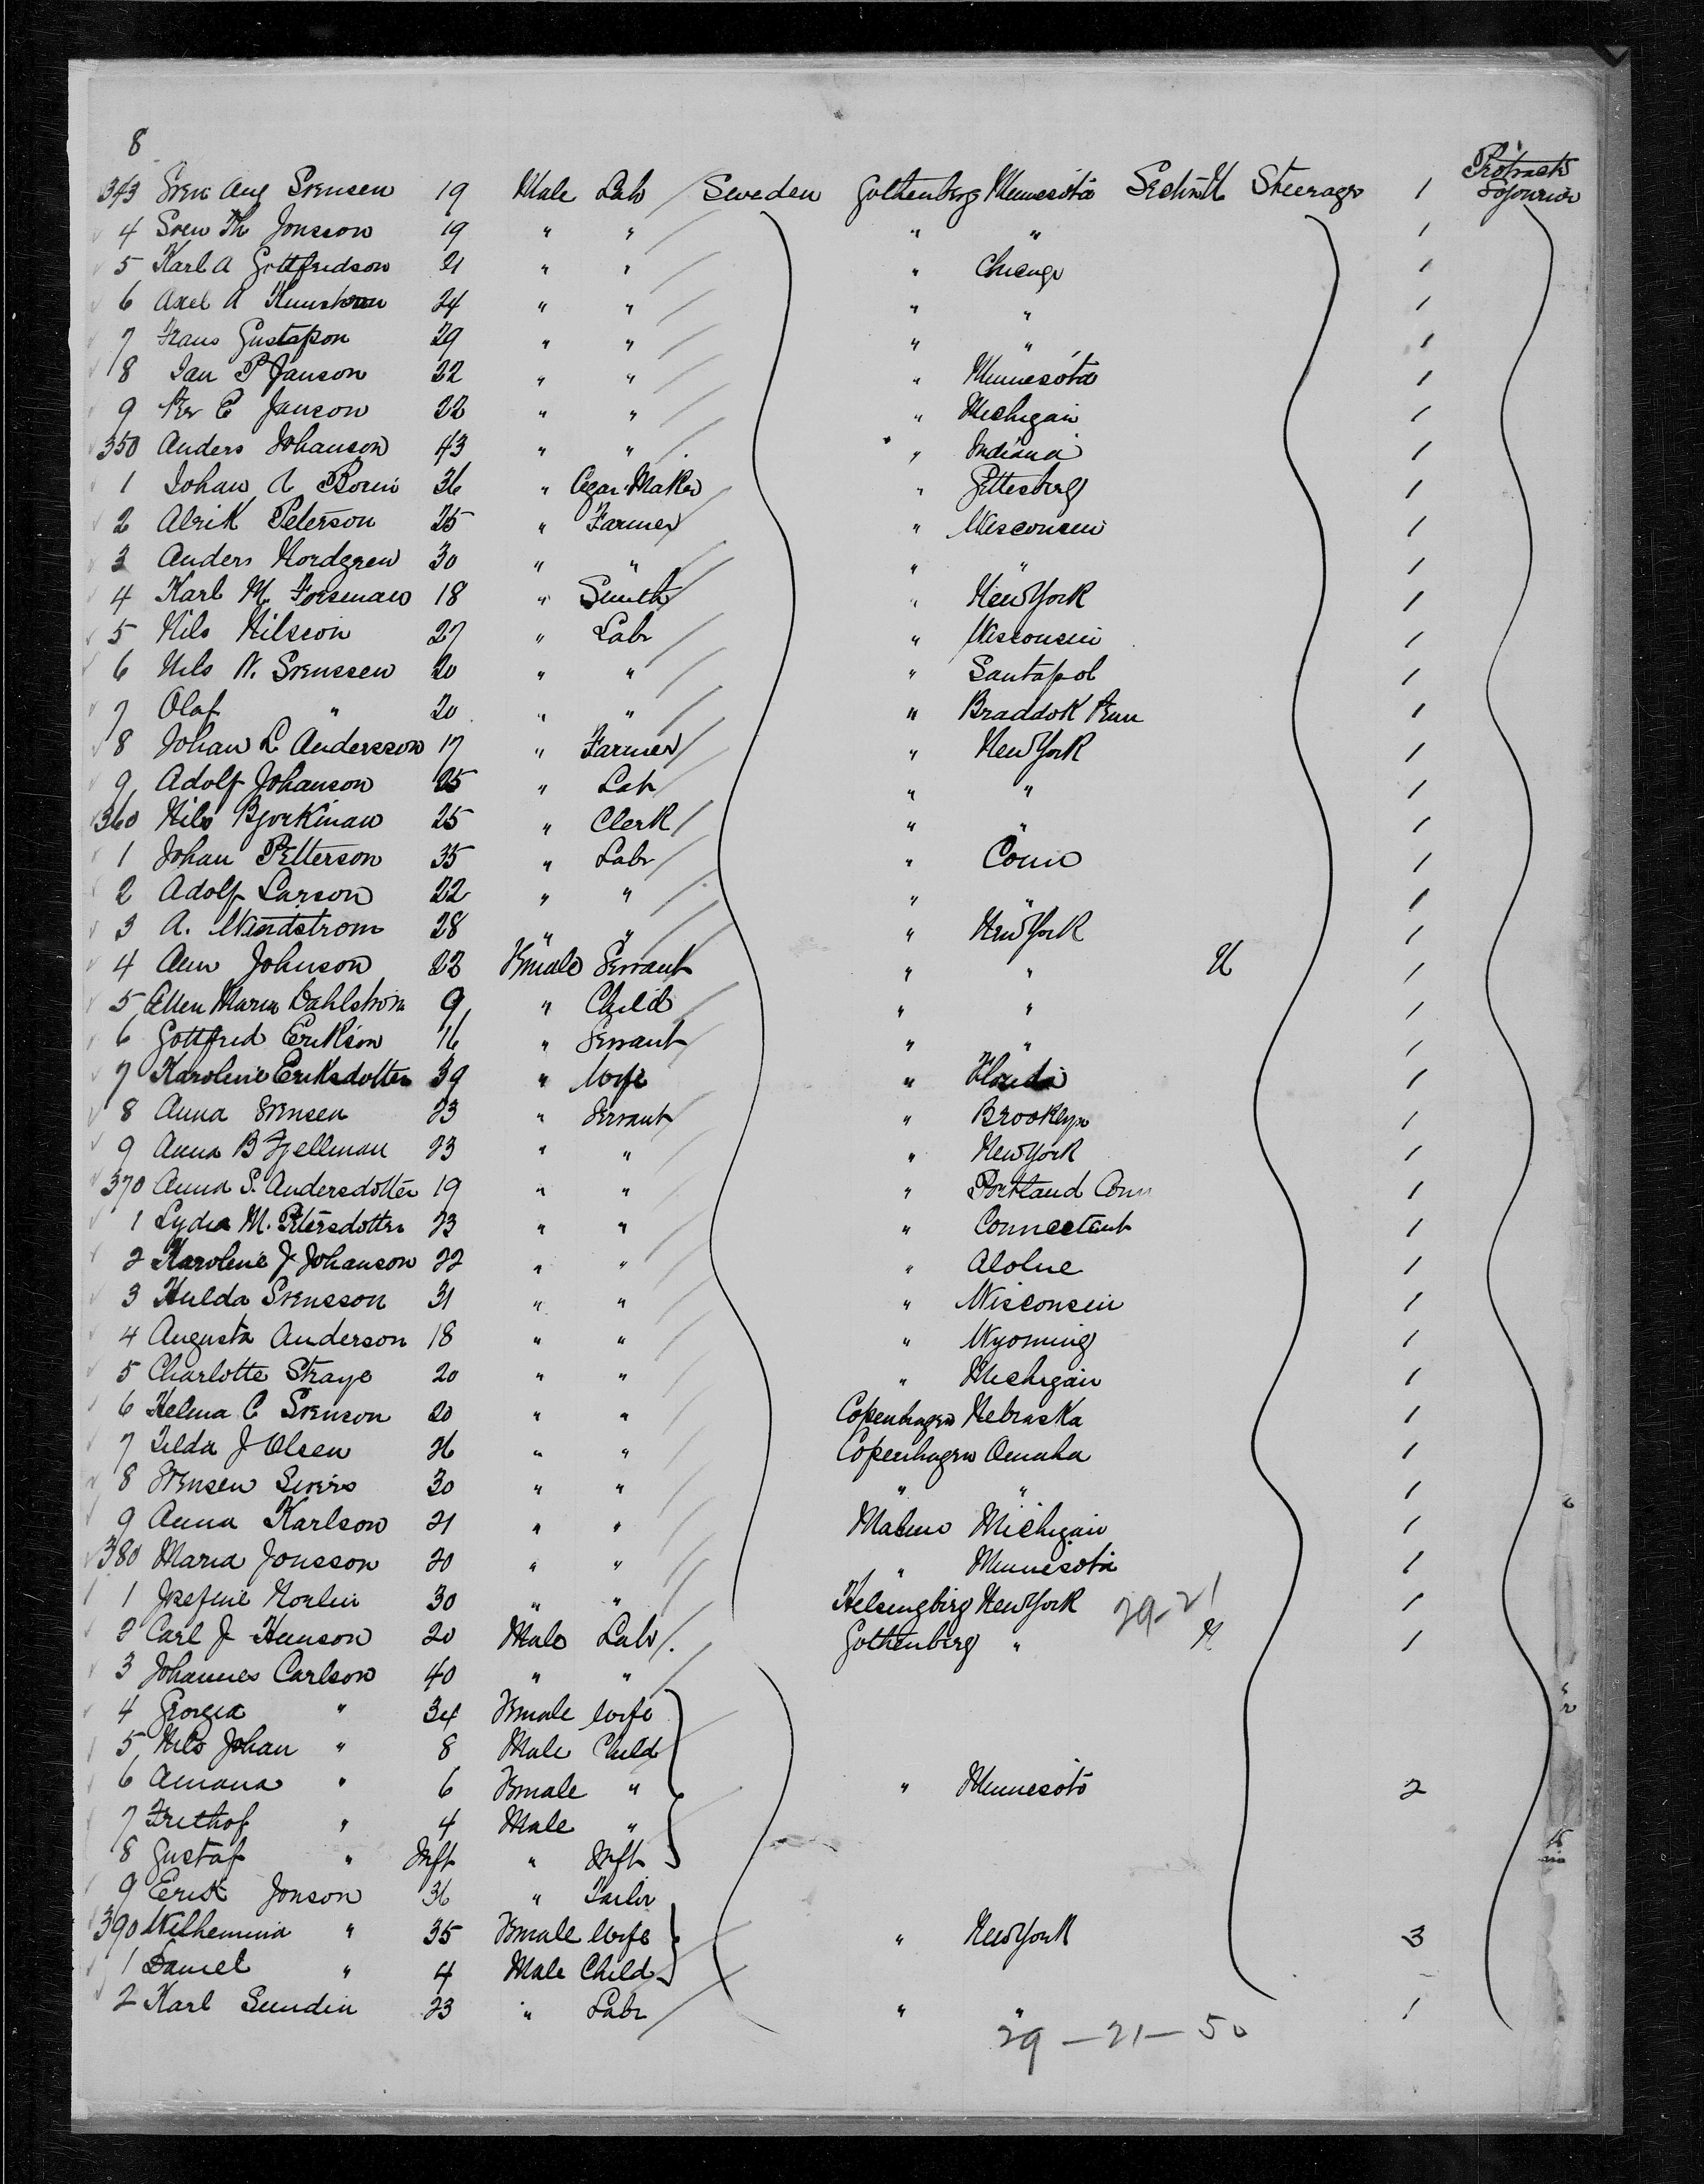 8
Protract Sojourn
343 Sven Aug Svensen 19 Male Lab Sweden Gothenberg Minnesota Steerage 1
4 Sven Th Jonsson 19 " " " " 1
5 Karl A Gottfridson 21 " " " Chicago 1
6 Axel A 24 " " " " 1
7 Frans Gustafson 29 " " " " 1
8 Jan P Janson 22 " " " Minnesota 1
9 Per E Janson 22 " " " Michigan 1
350 Anders Johanson 43 " " " Indiana 1
1 Johan A 36 " Cigar Maker " Gettesberg 1
2 Alrik Peterson 25 " Farmer " Wisconsin 1
3 Anders Nordgren 30 " " " " 1
4 Karl M. Forsman 18 " Smith " New York 1
5 Nils Nilsson 27 " Labr " Wisconsin 1
6 Nils N. Svenssen 20 " " " Santapol 1
7 Olaf " 20 " " " Braddok Penn 1
8 Johan L Andersson 17 " Farmer " New York 1
9 Adolf Johanson 25 " Lab " " 1
360 Nils Bjorkman 25 " Clerk " " 1
1 Johan Petterson 35 " Labr " Conn 1
2 Adolf Larson 22 " " " " 1
3 A. Windstrom 28 " " " New York 1
4 Ann Johnson 22 Female Servant " " U 1
5 Ellen Maria Dahlstrom 9 " Child " " 1
6 Gottfred Erikson 16 " Servant " " 1
7 Karoline Eriksdotter 39 " Wife " Florida 1
8 Anna Svensen 23 " Servant " Brooklyn 1
9 Anna B Fjellman 23 " " " New York 1
370 Anna S. Andersdotter 19 " " " Portland Conn 1
1 Lydia M. Petersdotter 23 " " " Connectecut 1
2 Karoline J Johanson 22 " " " 1
3 Hulda Svensson 31 " " " Wisconsin 1
4 Augusta Anderson 18 " " " Wyoming 1
5 Charlotte Straye 20 " " " Michigan 1
6 Helma C Svenson 20 " " Copenhagen Nebraska 1
7 Tilda J Olsen 26 " " Copenhagen Omaha 1
8 Svensen Sivers 30 " " " " 1
9 Anna Karlson 21 " " Malmo Michigan 1
380 Maria Jonsson 20 " " " Minnesota 1
1 Josefine Norlin 30 " " Helsingberg New York 29-21 1
2 Carl J Hanson 20 Male Labr Gothenberg " 1
3 Johannes Carlson 40 " "
4 Georgia " 34 Female Wife
5 Nils Johan " 8 Male Child
6 Amana " 6 Female " " Minnesota 2
7 Frithof " 4 Male "
8 Gustaf " Inft " Inft
9 Erik Jonson 36 " Tailor
390 Wilhemina " 35 Female Wife " New York 3
1 Daniel " 4 Male Child
2 Karl Sundin 23 " Labr " " 1
29-21-50